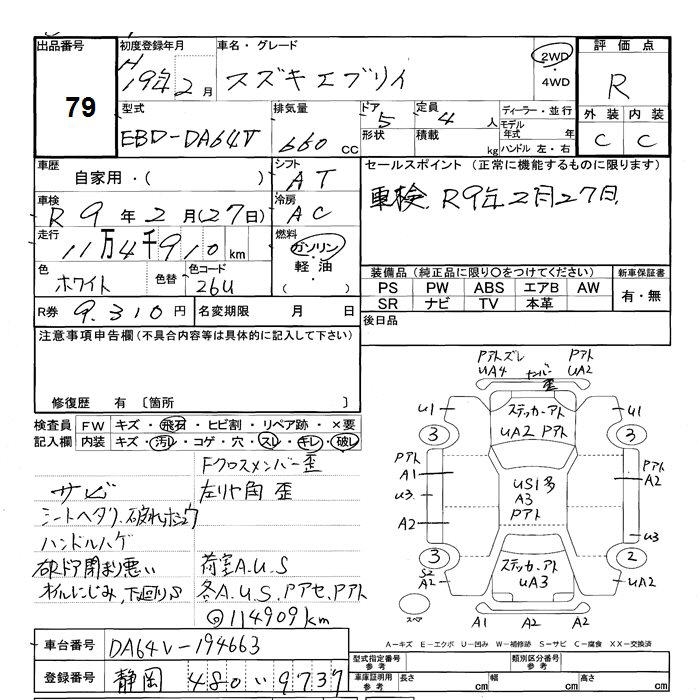 出品番号 79
初度登録年月 H 19年2月
車名・グレード スズキエブリイ
2WD・4WD
評価点 R
外装 C 内装 C
型式 EBD-DA64V
排気量 660 CC
ドア 5 形状
定員 4 人 積載 kg
ディーラー・並行
モデル年式 年
ハンドル 左・右
車歴 自家用・( )
シフト AT
車検 R 9年2月(27日)
冷房 AC
走行 11万4千910km
燃料 ガソリン・軽油・( )
色 ホワイト 色替 色コード 26U
R券 9,310円 名変期限 月 日
セールスポイント(正常に機能するものに限ります)
車検 R9年2月27日
装備品(純正品に限り○をつけてください) 新車保証書
PS PW ABS エアB AW 有・無
SR ナビ TV 本革
後日品
注意事項申告欄(不具合内容等は具体的に記入して下さい)
修復歴 有 〔箇所
検査員記入欄 FW キズ・飛石・ヒビ割・リペア跡・×要
内装 キズ・汚レ・コゲ・穴・スレ・キレ・破レ
Fクロスメンバー歪
サビ 左リヤ角 歪
シートヘタリ、破れ
ハンドルハゲ
ドア閉まり悪い 荷室A.U.S
オイルにじみ、下回りS 各A.U.S.Pアセ.Pアト
◎114909km
車台番号 DA64V-194663
登録番号 静岡 480 い 9737
Pアトズレ UA4 ナンバー歪 Pアト UA2
U1 ステッカーアト UA2 Pアト U1
3 3
Pアト A1 U3 A2
US1多 A3 Pアト
Pアト A2 U3
3 S2 A2 ステッカーアト UA3 2 UA2
スペア A1 A1 A2
A-キズ E-エクボ U-凹み W-補修跡 S-サビ C-腐食 XX-交換済
型式指定番号 参考 類別区分番号 参考
車庫証明用 参考 長さ cm 幅 cm 高さ cm